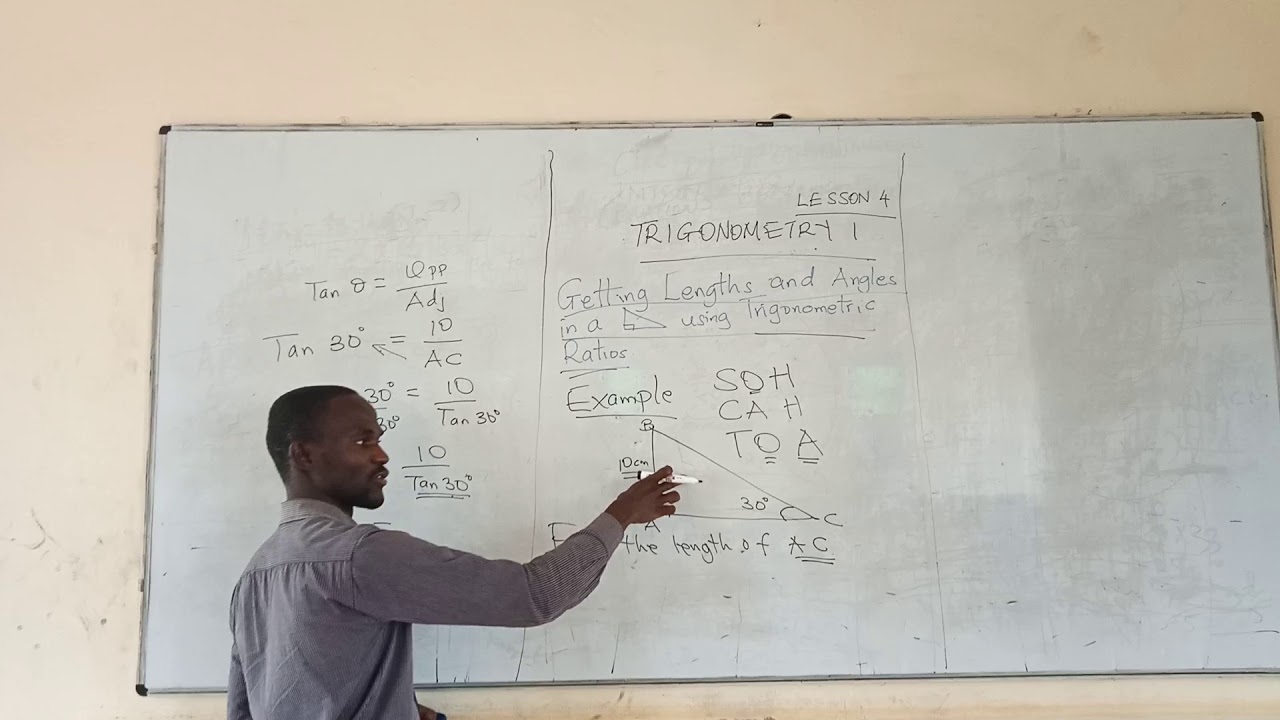 Tan θ = Opp / Adj
Tan 30° = 10 / AC
30° = 10 / Tan 30°
30°
10 / Tan 30°
LESSON 4
TRIGONOMETRY 1
Getting Lengths and Angles
in a using Trigonometric
Ratios
Example
SOH
CAH
TOA
B
10cm
30°
A
C
the length of AC